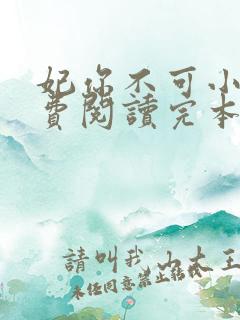 妃你不可小
費閱讀完本
請叫我山大王
未經同意禁止轉載